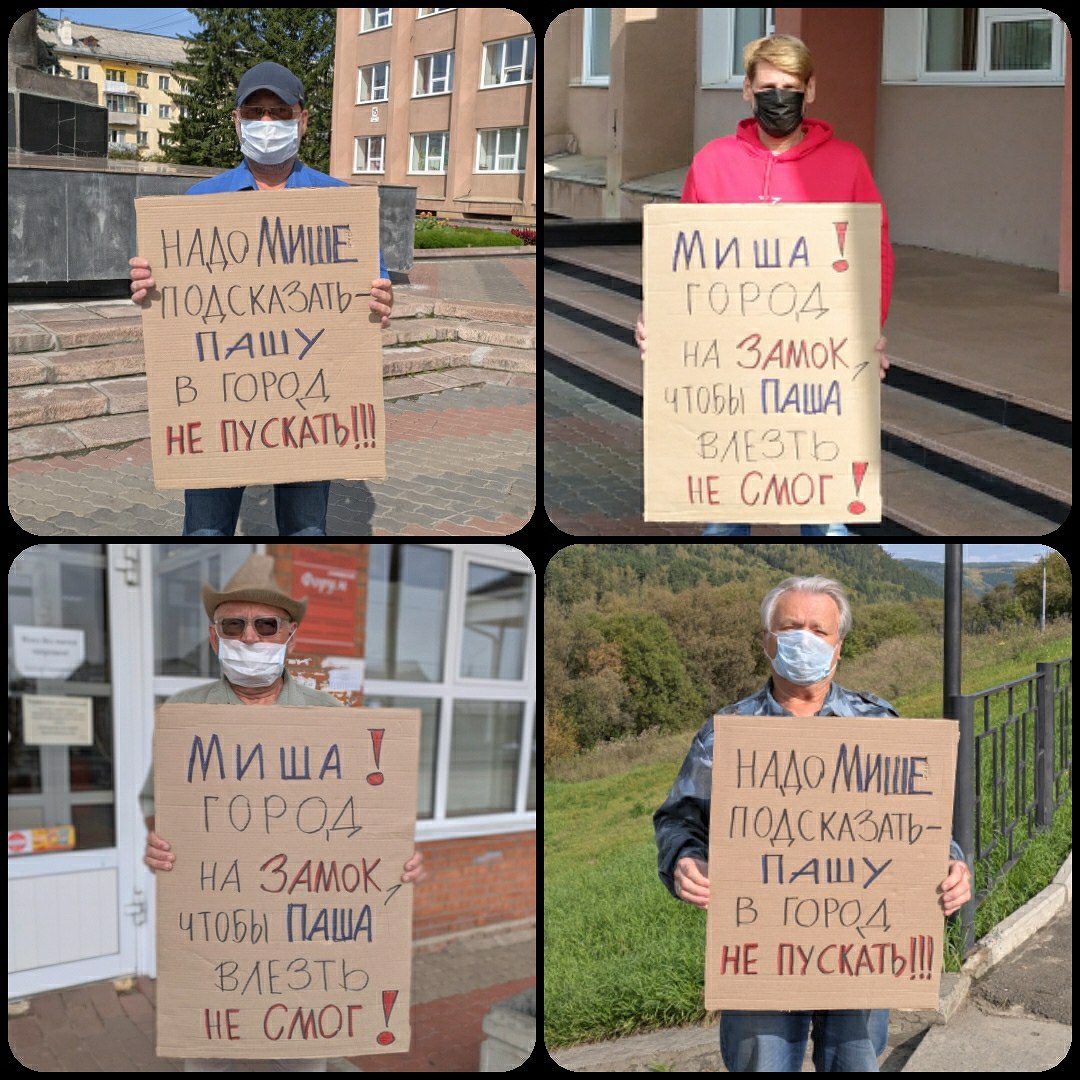 НАДО МИШЕ
ПОДСКАЗАТЬ-
ПАШУ
В ГОРОД
НЕ ПУСКАТЬ!!!
МИША!
ГОРОД
НА ЗАМОК,
ЧТОБЫ ПАША
ВЛЕЗТЬ
НЕ СМОГ!
Форум
МИША!
ГОРОД
НА ЗАМОК,
ЧТОБЫ ПАША
ВЛЕЗТЬ
НЕ СМОГ!
НАДО МИШЕ
ПОДСКАЗАТЬ-
ПАШУ
В ГОРОД
НЕ ПУСКАТЬ!!!